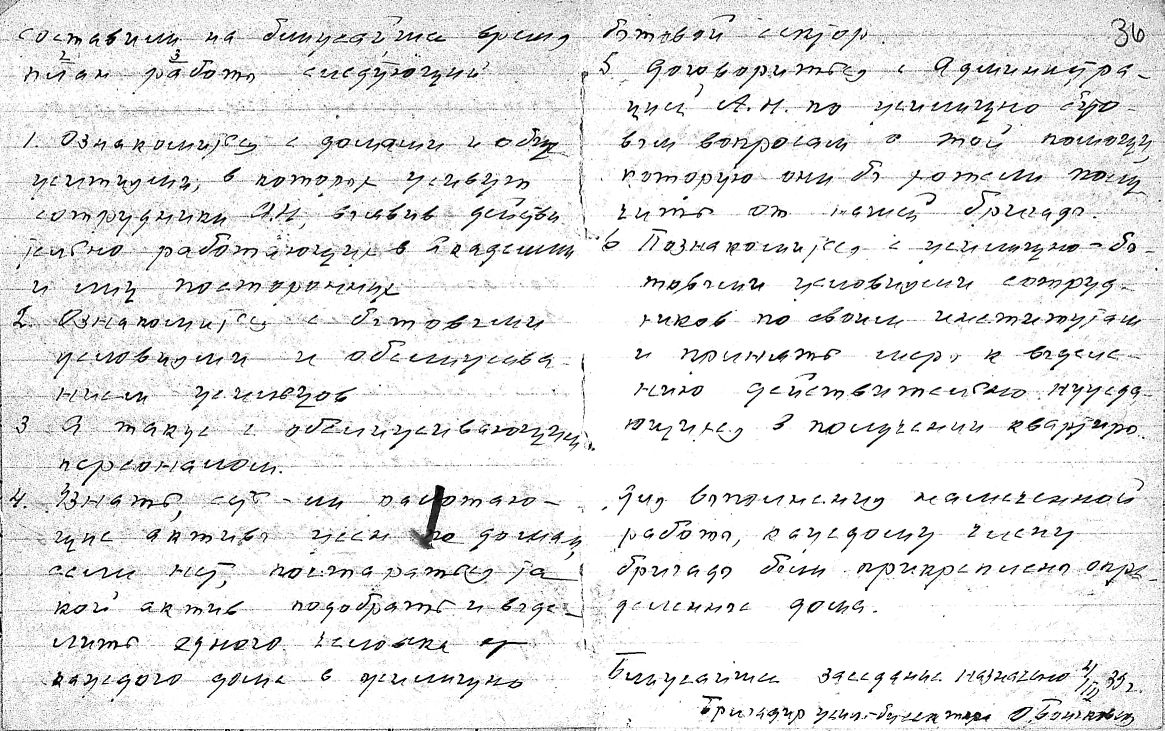 составили на ближайшее время
план работы следующий
1. Ознакомиться с домами и обще
житиями, в которых живут
сотрудники АН, выявив действи
тельно работающих в Академии
и лиц посторонних
2. Ознакомиться с бытовыми
условиями и обслужива
нием жильцов
3 А также с обслуживающим
персоналом.
4. Узнать, есть-ли работаю-
щие активы жен по домам,
если нет, постараться та
кой актив подобрать и выде-
лить одного человека от
каждого дома в жилищно
36
бытовой сектор.
5 Договориться с Администра-
цией А.Н. по жилищно быто-
вым вопросам о той помощи,
которую они бы хотели полу
чить от нашей бригады.
6 Познакомиться с жилищно-бы-
товыми условиями сотруд-
ников по своим институтам
и принять меры к выявле-
нию действительно нужда-
ющихся в получении квартиры.
Для выполнения намеченной
работы, каждому члену
бригады были прикреплены опре-
деленные дома.
Ближайшее заседание назначено 4/IV 39 г.
Бригадир жил-быт сектора